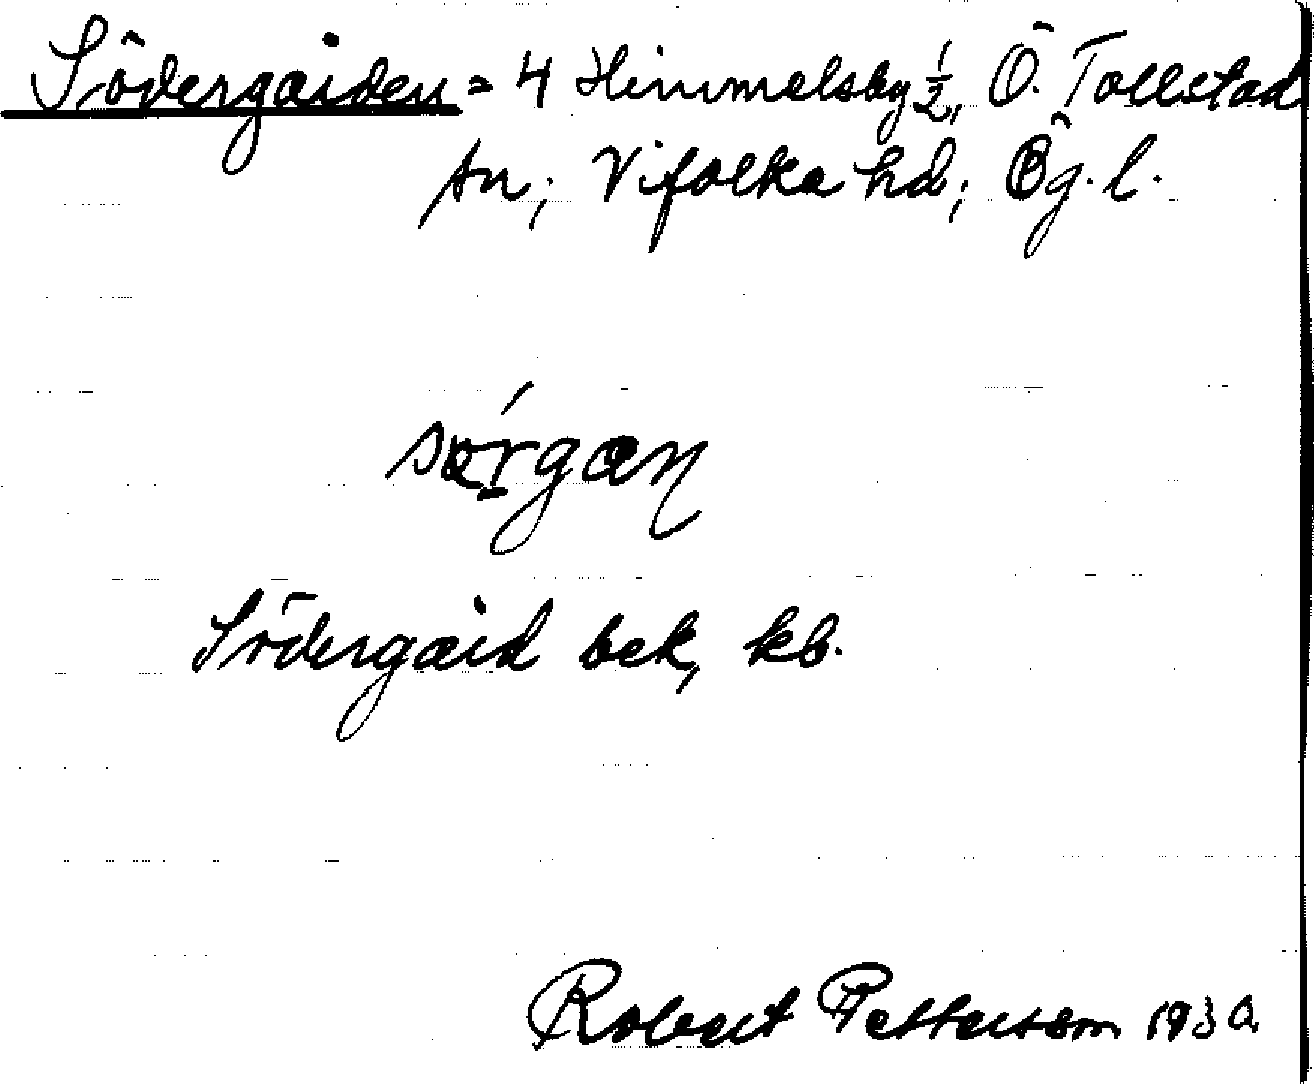 Södergården = 4 Himmelsby ½, Ö. Tollstad
sn; Vifolka hd; Ög. l.
Södergård bek, kb.
Robert Pettersson 1930